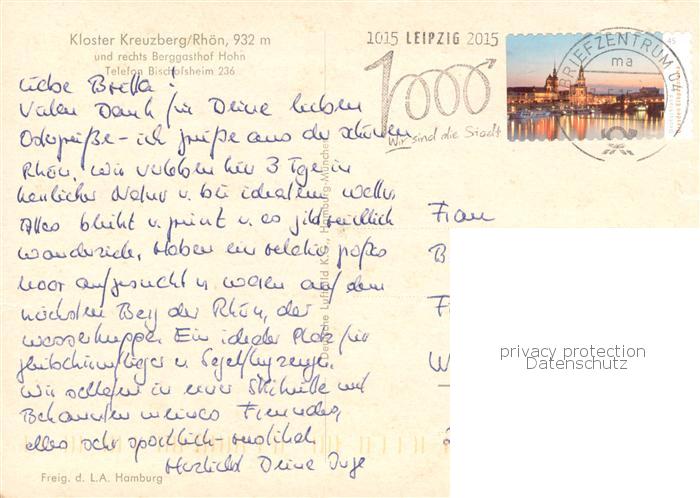 Kloster Kreuzberg/Rhön, 932 m
und rechts Berggasthof Hohn
Telefon Bischofsheim 236
1015 LEIPZIG 2015
1000
Wir sind die Stadt
BRIEFZENTRUM 04
ma
45
Liebe Britta!
Vielen Dank für Deine lieben
Ostergrüße – ich grüße aus der schönen
Rhön, wir verleben hier 3 Tge in
herrlicher Natur u. bei idealem Wetter.
Alles blüht u. grünt u. es gibt reichlich
Wanderziele, Haben ein relativ großes
Moor aufgesucht u. waren auf dem
höchsten Berg der Rhön, der
Wasserkuppe. Ein idealer Platz für
Gleitschirmflieger u. Segelflugzeuge.
Wir schlafen in einer Skihütte mit
Bekannten meines Freundes,
alles sehr sportlich-rustikal
Herzlichst Deine Inge
Frau
B
F
W
Deutsche Luftbild K.G., Hamburg-München
Freig. d. L.A. Hamburg
privacy protection
Datenschutz